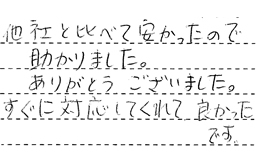 他社と比べて安かったので
助かりました。
ありがとうございました。
すぐに対応してくれて良かった
です。